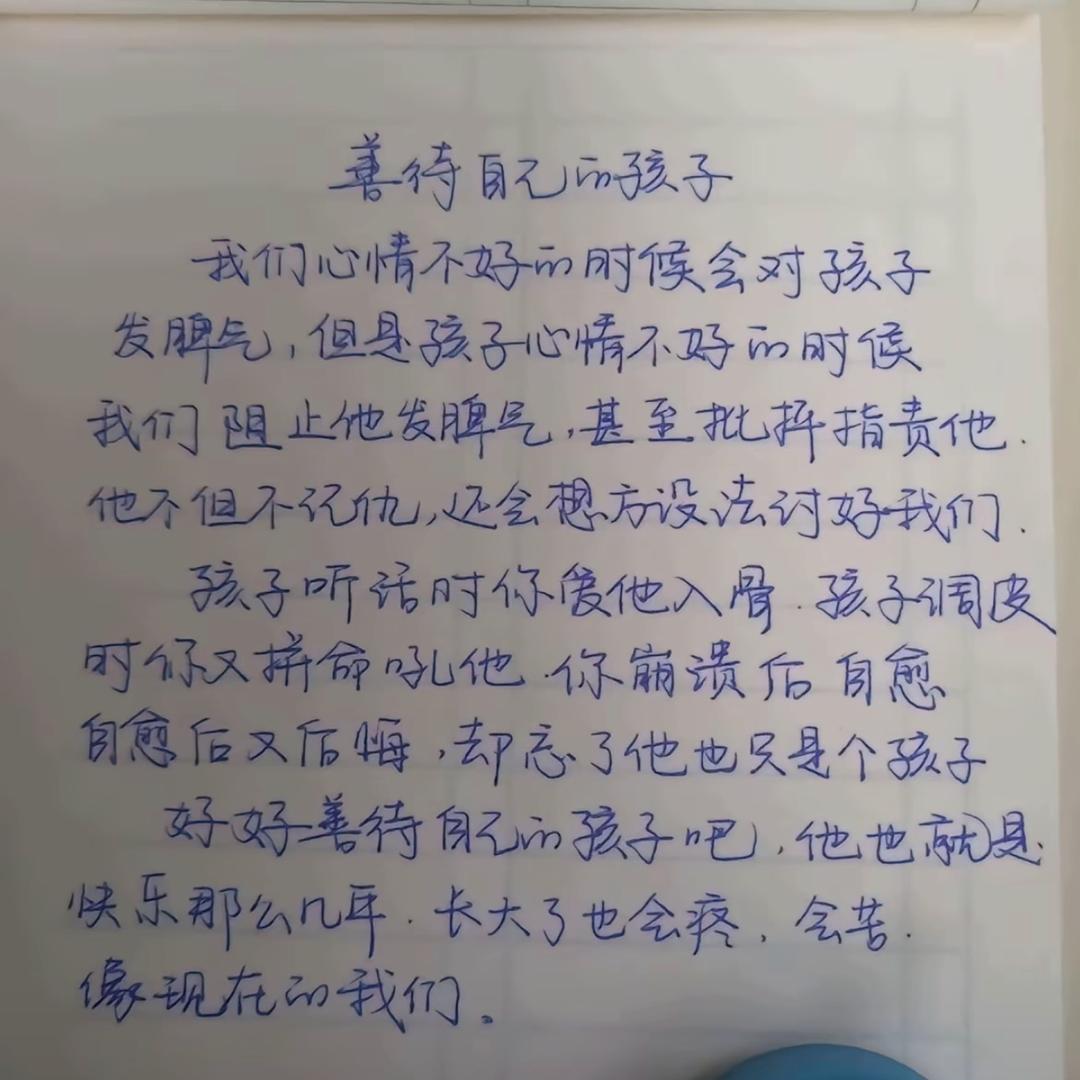 善待自己的孩子
我们心情不好的时候会对孩子
发脾气,但是孩子心情不好的时候
我们阻止他发脾气,甚至批抨指责他.
他不但不记仇,还会想方设法讨好我们.
孩子听话时你爱他入骨.孩子调皮
时你又拼命吼他.你崩溃后自愈
自愈后又后悔,却忘了他也只是个孩子
好好善待自己的孩子吧,他也就是
快乐那么几年.长大了也会疼,会苦.
像现在的我们。